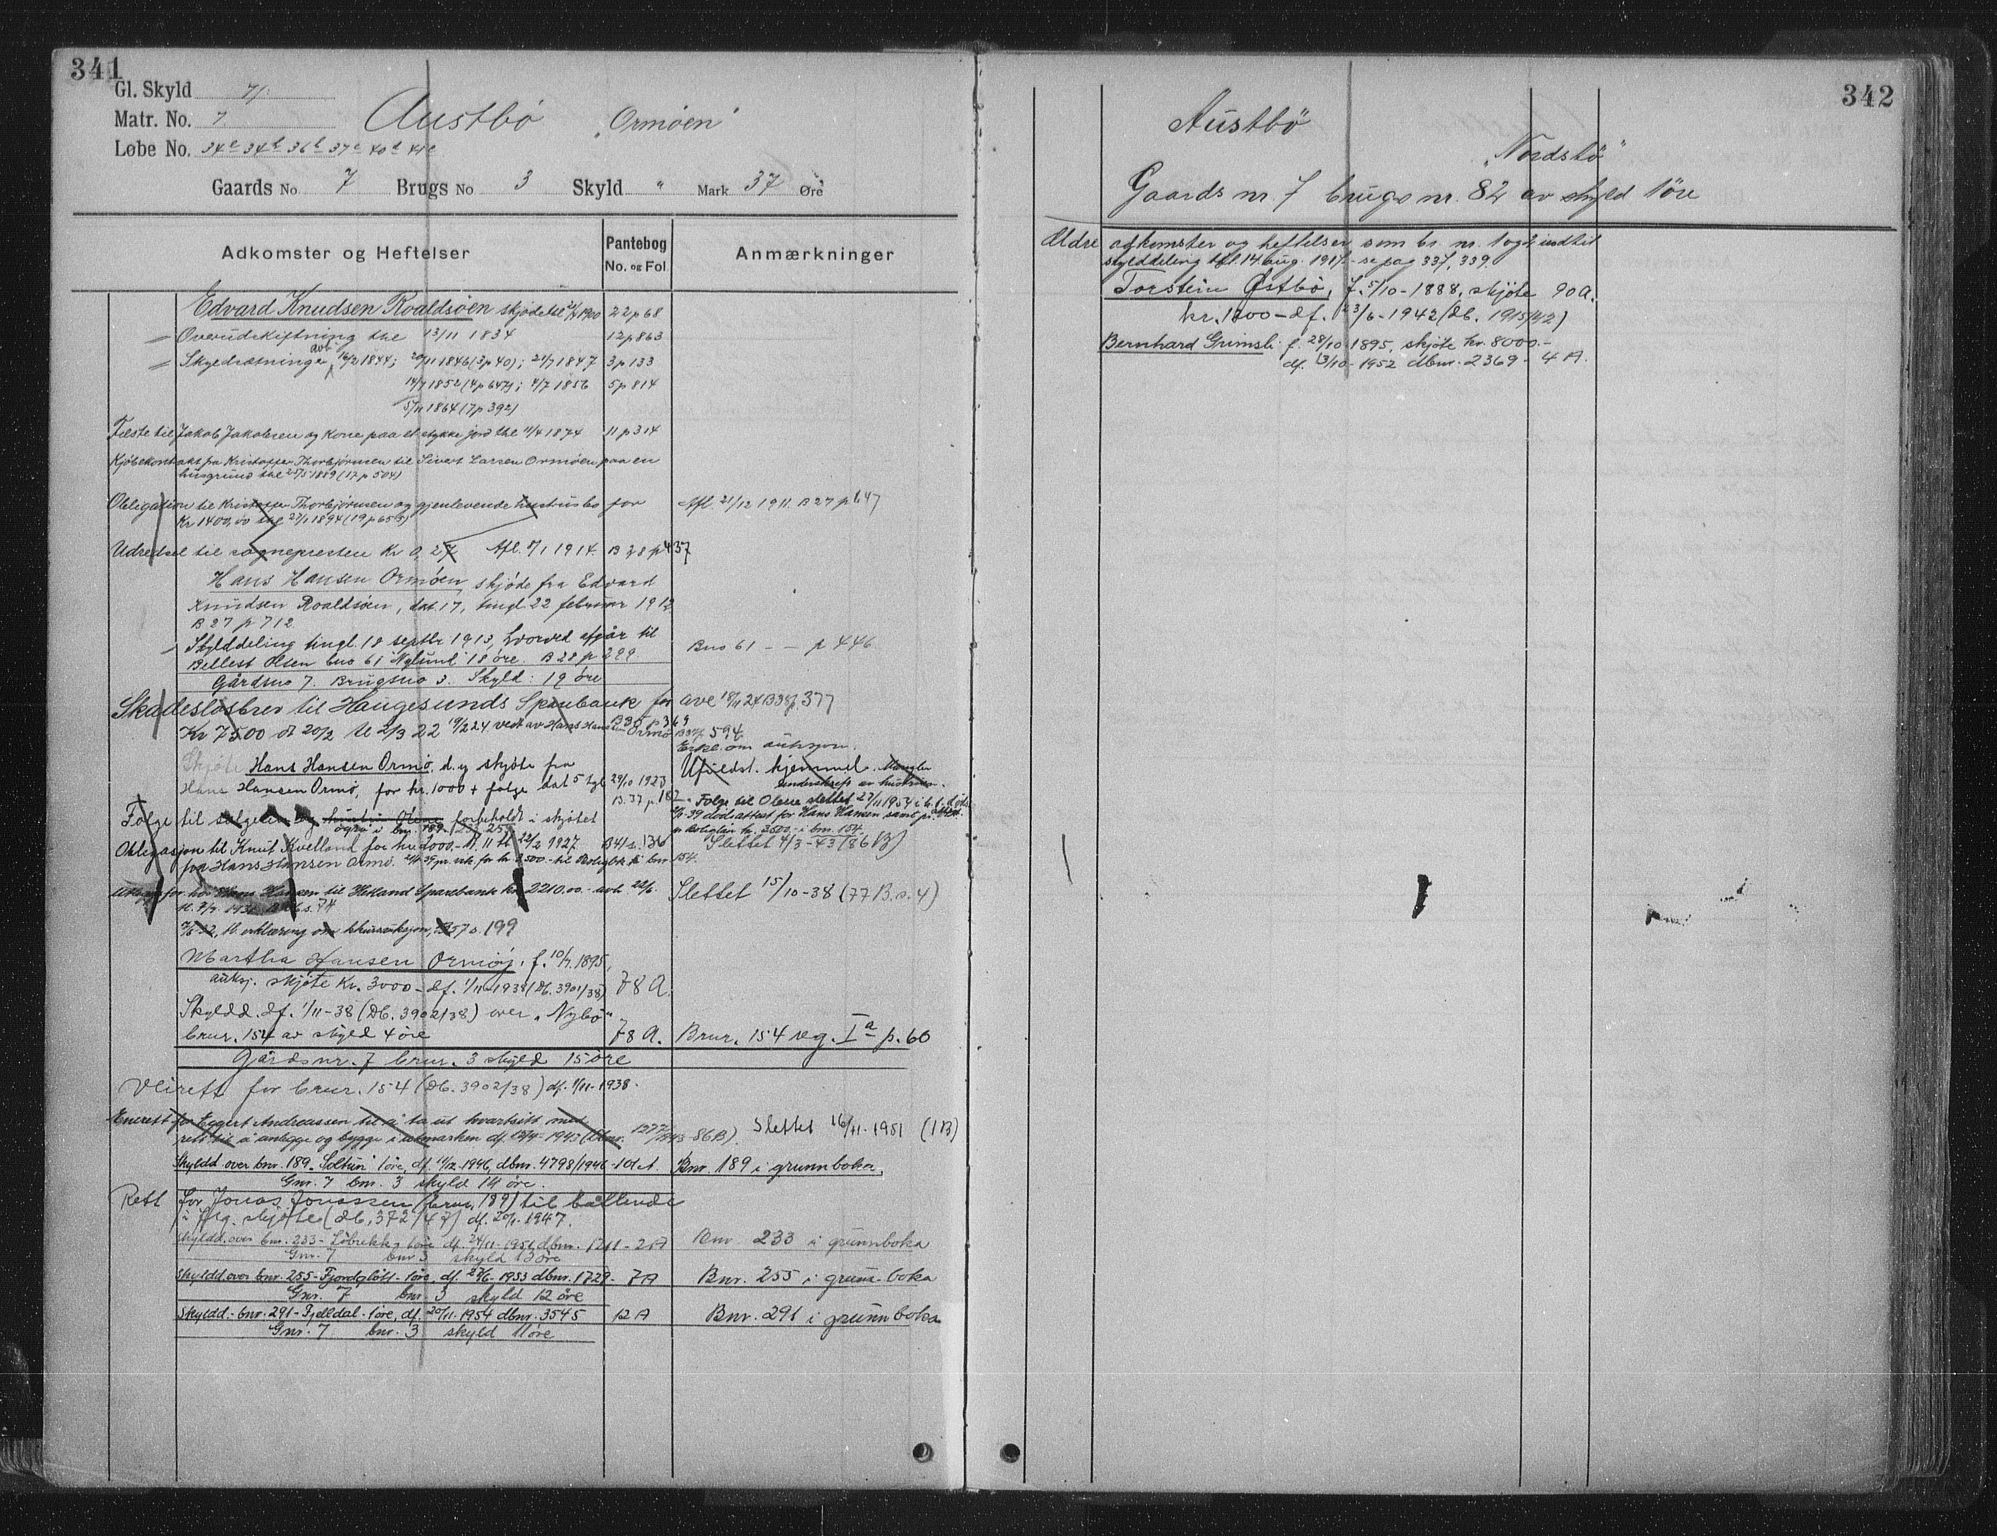 341
Gl. Skyld 7/
Matr. No. 7 Austbø "Ormøen"
Løbe No. 34c 34d 36b 37c 40c 41c
Gaards No 7 Brugs No 3 Skyld " Mark 37 Øre
Adkomster og Heftelser
Pantebog
No. og Fol
Anmærkninger
Edvard Knudsen Roaldsøen skjøde thl 1900 22 p 68
Overudskiftning thl 13/11 1834 12 p 863
Skyldsætninger avh 16/2 1844; 20/11 1846 (3 p 40); 24/7 1847 3 p 133
14/7 1852 (4 p 647); 4/7 1856 5 p 814
5/11 1864 (7 p 392)
Fæste til Jakob Jakobsen og Kone paa et stykke jord thl 11/4 1874 11 p 314
Kjøbekontrakt fra Kristoffer Thorbjørnsen til Sivert Larsen Ormøen paa en
husgrund thl 25/5 1889 (17 p 504)
Obligation til Kristoffer Thorbjørnsen og gjenlevende hustrus bo for Afl. 21/12 1911. B 27 p 647
Kr 1400,00 thl 27/1 1894 (19 p 659)
Udredsel til sognepresten Kr 0,27 Afl. 7/1 1914. B 28 p 437
Hans Hansen Ormøen, skjøde fra Edvard
Knudsen Roaldsøen, dat. 17, tingl. 22 februar 1912
B 27 p 712
Skylddeling tingl 18 septbr 1913, hvorved afgår til
Bellest Olsen bno 61 "Nylund" 18 øre. B 28 p 299 Bno 61 — — p 446
Gårdsno 7. Brugsno 3. Skyld: 19 øre
Skadesløsbrev til Haugesunds Sparebank for ave 18/11 24 B 38 p 377
Kr 7500 dt 20/2 tl 2/3 22 19/2 24 vedt av Hans Hansen Ormø B 35 p 369
B 37 p 594
Erkl. om auksjon.
Skjøte Hans Hansen Ormø, d.y skjøte fra Ufuldst. hjemmel. Mangler
underskrift av hustruen.
Hans Hansen Ormø, for kr. 1000 + følge dat 5 tgl 29/10 1923
B. 37 p. 187
Følge til Olene slettet 27/11 1954
39 dødsattest for Hans Hansen samt
Følge til selgeren og hustru Olene forbeholdt i skjøtet
også i bnr. 189- 233 255
obligasjon kr. 3500.- i bnr. 154
Obligasjon til Knut Kvelland for kr. 2000.- d. 11 tl 22/2 1927. B 41 s. 136 Slettet 4/3-43 (86 B)
fra Hans Hansen Ormø.
for Hans Hansen til Hetland Sparebank kr. 2210.00.- Slettet 15/10-38 (77 B. s. 4)
tl. erklæring om s. 199
Martha Hansen Ormøy. f. 10/7. 1895,
auksj. skjøte Kr. 3000.- df. 1/11-1938 (Db. 3901/38) 78 A.
Skyldd. df. 1/11-38 (Db. 3902/38) over "Nybø"
brnr. 154 av skyld 4 øre 78 A. Brnr. 154 reg. I a p. 60
Gårdsnr. 7 brnr. 3 skyld 15 øre
Veirett for brnr. 154 (Db. 3902/38) df. 1/11-1938.
Enerett for Eggert Andreassen til å ta ut kvartsitt med
rett til å anlegge og bygge i utmarken df. 12/4-1943 (dbnr. 1277/1943-86 B). Slettet 16/11-1951 (1 B)
Skyldd over bnr. 189 "Soltun" 1 øre, df. 11/12 1946, dbnr. 4798/1946-101 A Bnr 189 i grunnboka,
Gnr. 7 bnr. 3 skyld 14 øre.
Rett for Jonas Jonassen (brnr. 189) til
i flg. skjøte (db. 372/47) df. 20/1-1947.
Skyldd. over bnr. 233- Løbrekk, 1 øre df. 24/11-1951 dbnr. 1211 - 2 A Bnr 233 i grunnboka
Gnr. 7 bnr 3 skyld 13 øre
Skyldd over bnr. 255- Fjordgløtt- 1 øre, df. 27/6-1953 dbnr. 1729- 7 A Bnr. 255 i grunnboka
Gnr. 7 bnr. 3 skyld 12 øre
Skyldd.- bnr. 291- Fjelldal- 1 øre, df. 20/11-1954 dbnr. 3545 12 A Bnr. 291 i grunnboka
Gnr. 7 bnr. 3 skyld 11 øre
342
Austbø
"Nordstø"
Gaards nr. 7 brugs nr. 82 av skyld 1 øre
Ældre adkomster og heftelser som br. nr. 1 og 2 indtil
skylddeling thl. 14 aug. 1917 - se pag 337, 339.
Torstein Østbø, f. 5/10-1888, skjøte 90 A.
kr. 1200- df. 23/6-1942 (Db. 1915/42)
Bernhard Grimsb. f. 29/10-1895, skjøte kr. 8000.-
df. 13/10-1952 dbnr. 2369- 4 A.